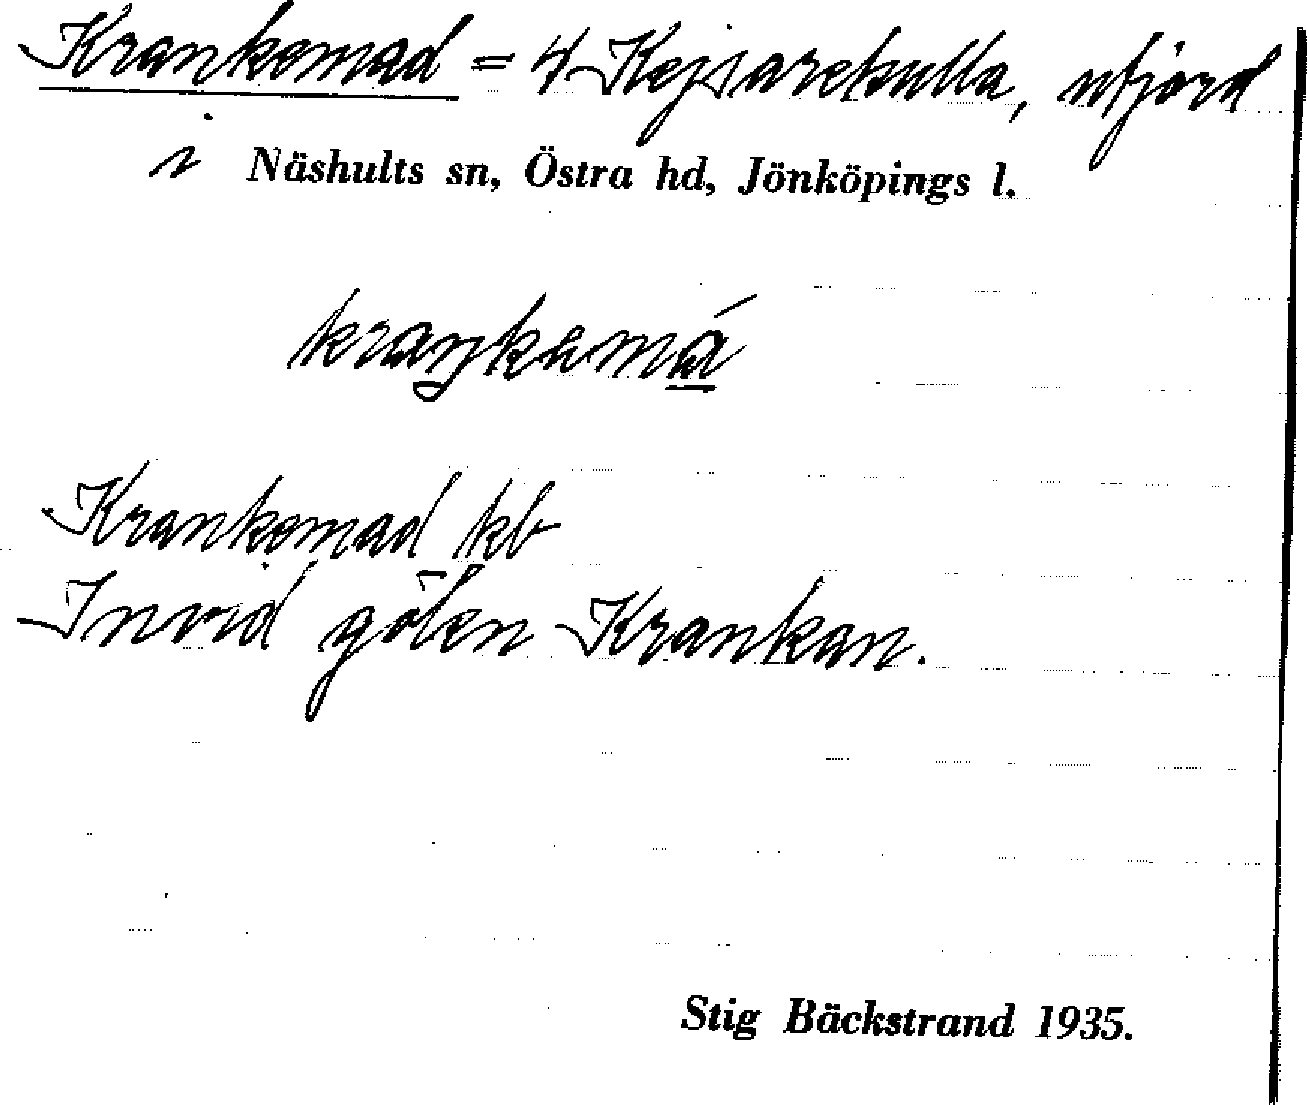 Krankomad = 4 Kejsarekulla, utjord
i Näshults sn, Östra hd, Jönköpings l.
Krankomad kb
Invid gölen Krankan.
Stig Bäckstrand 1935.